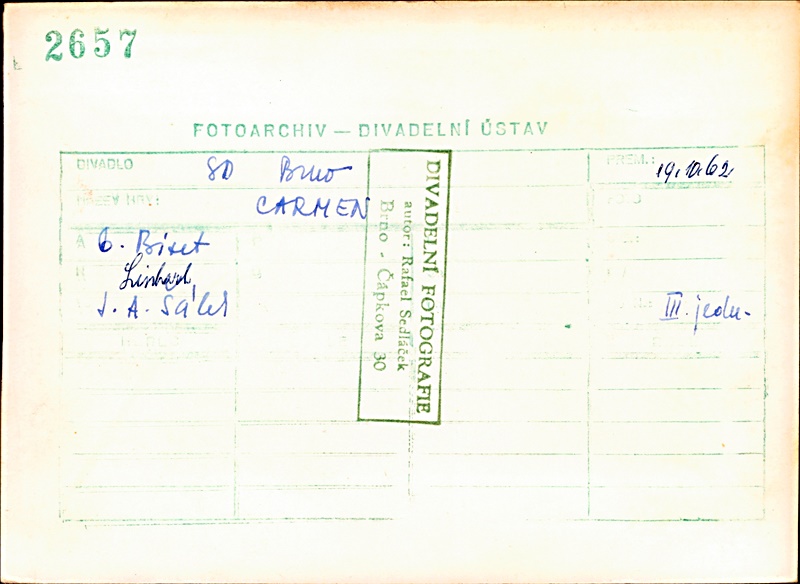 2657
FOTOARCHIV — DIVADELNÍ ÚSTAV
DIVADLO SD Brno
PREM.: 19.10.62
NÁZEV HRY: CARMEN
G. Bizet
Linhart
J. A. Sálel
III. jedn.
DIVADELNÍ FOTOGRAFIE
autor: Rafael Sedláček
Brno - Čápkova 30